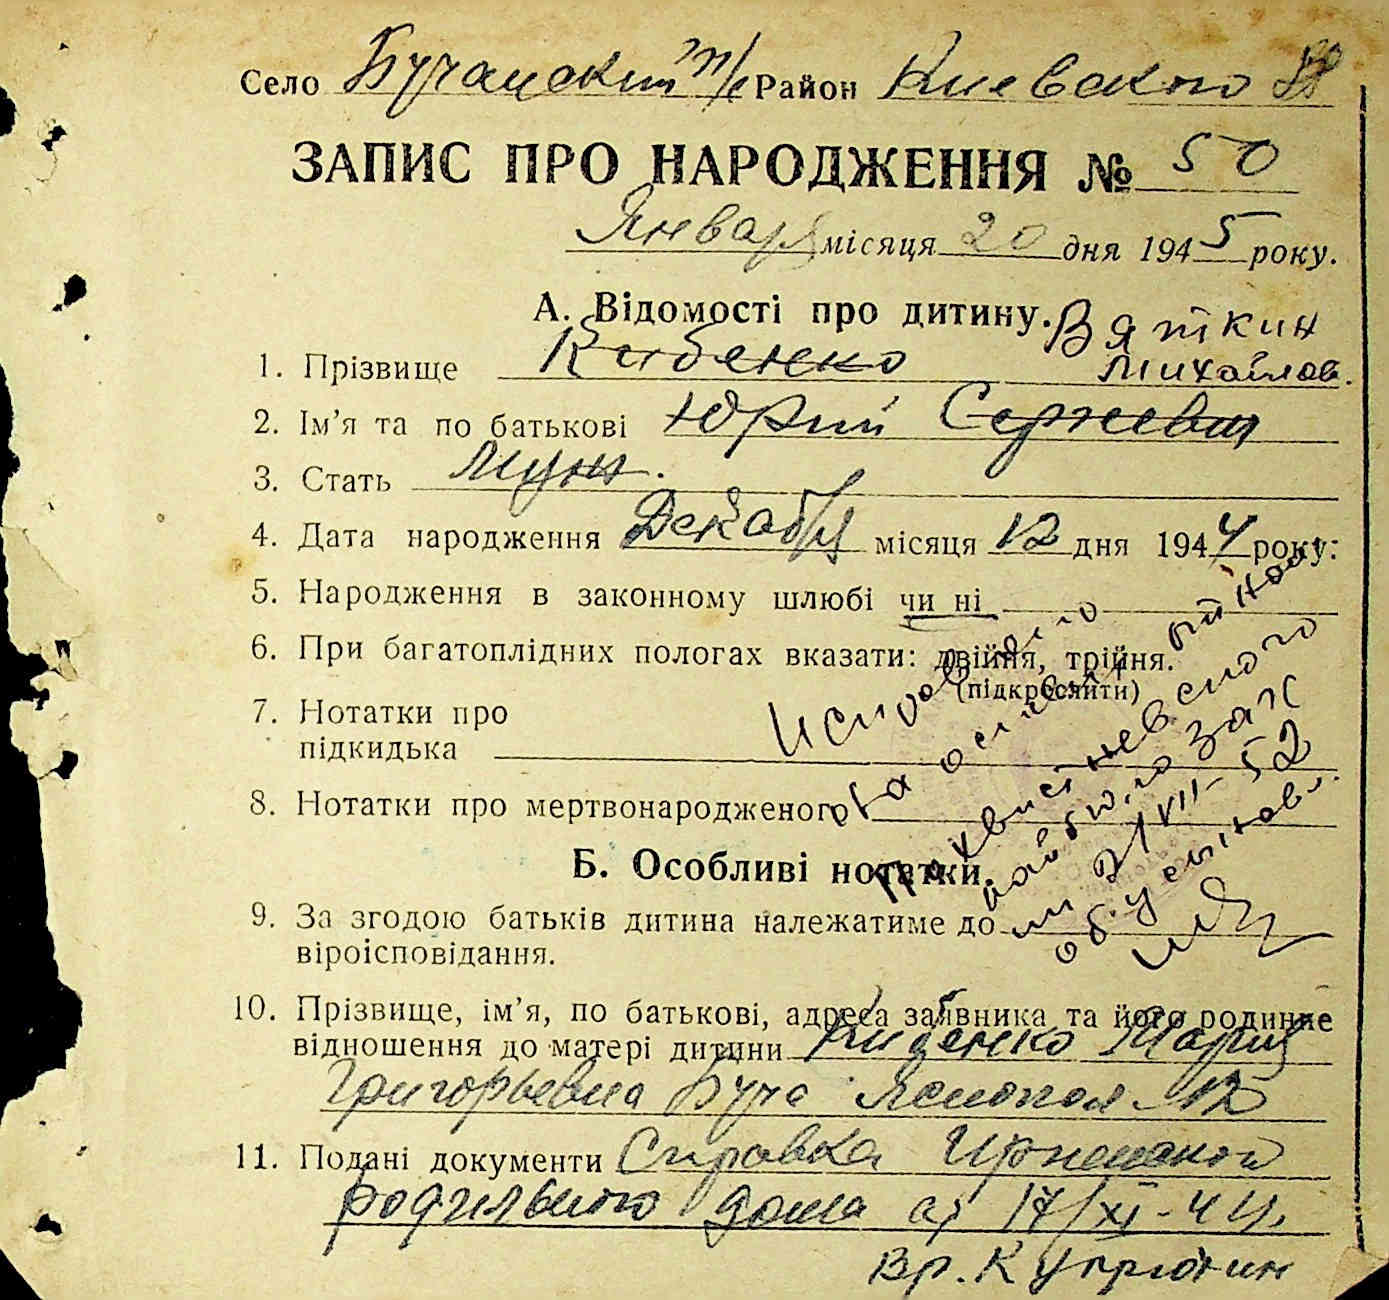 Село Бучанский п/с Район Киевского
ЗАПИС ПРО НАРОДЖЕННЯ № 50
Января місяця 20 дня 1945 року.
А. Відомості про дитину. Вяткин
1. Прізвище Кибенко Михайлов.
2. Ім'я та по батькові Юрий Сергеевич
3. Стать Муж.
4. Дата народження Декабря місяця 12 дня 1944 року:
5. Народження в законному шлюбі чи ні
6. При багатоплідних пологах вказати: двійня, трійня.
(підкреслити)
7. Нотатки про
підкидька
8. Нотатки про мертвонародженого
Исправлено
на основании
районного ЗАГС
21/VII-52
об усыновл.
Б. Особливі нотатки.
9. За згодою батьків дитина належатиме до
віроісповідання.
10. Прізвище, ім'я, по батькові, адреса заявника та його родинне
відношення до матері дитини Кибенко Мария
Григорьевна Буча 12
11. Подані документи Справка Ирпенской
родильного дома от 17/XI-44
Вр. Купрютин